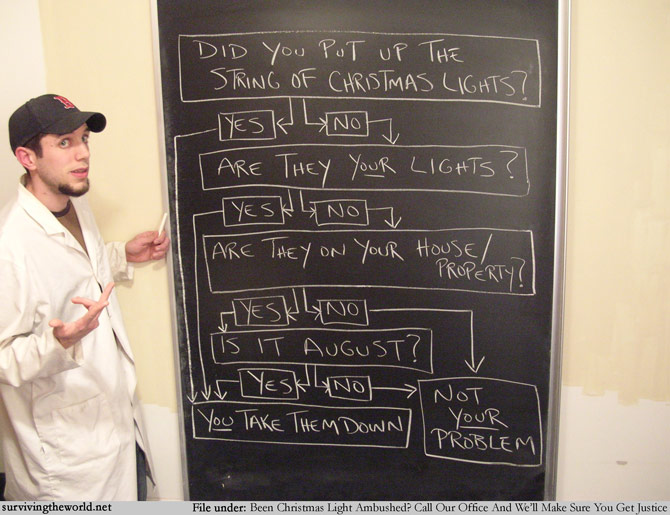 DID YOU PUT UP THE
STRING OF CHRISTMAS LIGHTS?
YES
NO
ARE THEY YOUR LIGHTS?
YES
NO
ARE THEY ON YOUR HOUSE/
PROPERTY?
YES
NO
IS IT AUGUST?
YES
NO
YOU TAKE THEM DOWN
NOT
YOUR
PROBLEM
survivingtheworld.net
File under: Been Christmas Light Ambushed? Call Our Office And We'll Make Sure You Get Justice.